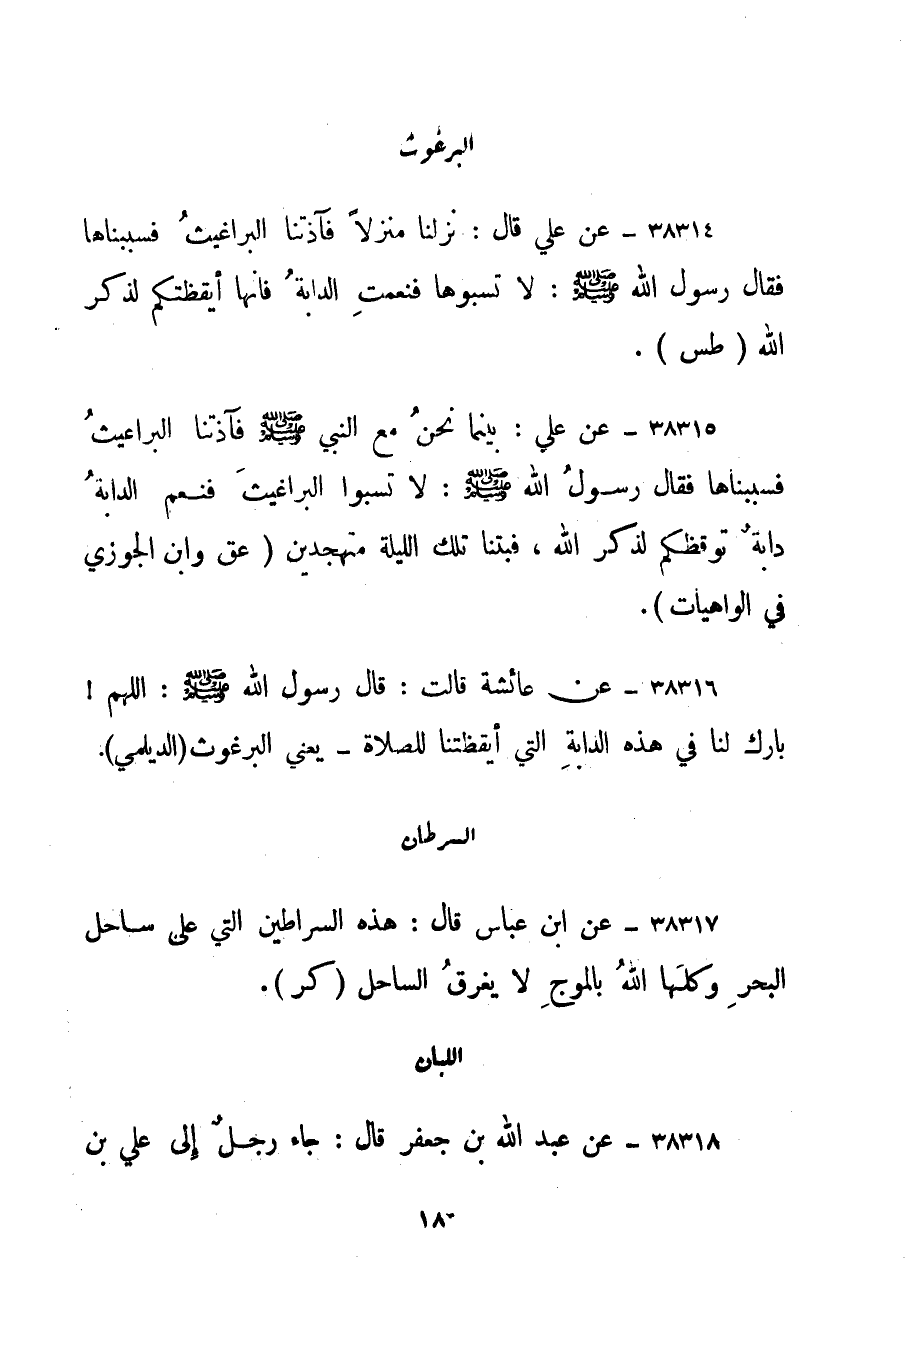 البرغوث
٣٨٣١٤ ـ عن علي قال : نزلنا منزلاً فآذتنا البراغيثُ فسببناها
فقال رسول الله ﷺ : لا تسبوها فنعمتِ الدابةُ فانها أيقظتكم لذكر
الله ( طس ) .
٣٨٣١٥ ـ عن علي : بينما نحنُ مع النبي ﷺ فآذتنا البراغيثُ
فسببناها فقال رسولُ الله ﷺ : لا تسبوا البراغيثَ فنعم الدابةُ
دابةٌ توقظكم لذكر الله ، فبتنا تلك الليلة متهجدين ( عق وابن الجوزي
في الواهيات ) .
٣٨٣١٦ ـ عن عائشة قالت : قال رسول الله ﷺ : اللهم !
بارك لنا في هذه الدابةِ التي أيقظتنا للصلاة ـ يعني البرغوث (الديلمي).
السرطان
٣٨٣١٧ ـ عن ابن عباس قال : هذه السراطين التي على ساحل
البحرِ وكلَها اللهُ بالموجِ لا يغرقُ الساحل ( كر ) .
اللبان
٣٨٣١٨ ـ عن عبد الله بن جعفر قال : جاء رجلٌ إلى علي بن